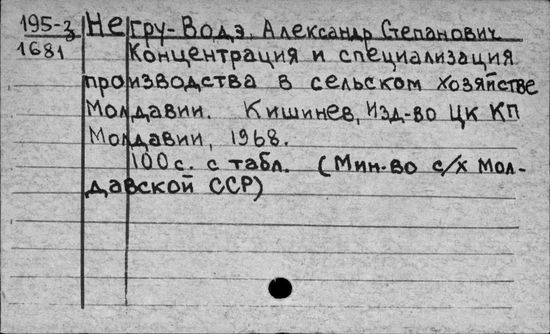 195-3 Негру-Водэ, Александр Степанович
1681 Концентрация и специализация
производства в сельском хозяйстве
Молдавии. Кишинев, Изд-во ЦК КП
Молдавии, 1968.
100 с. с табл. (Мин-во с/х Мол-
давской ССР)